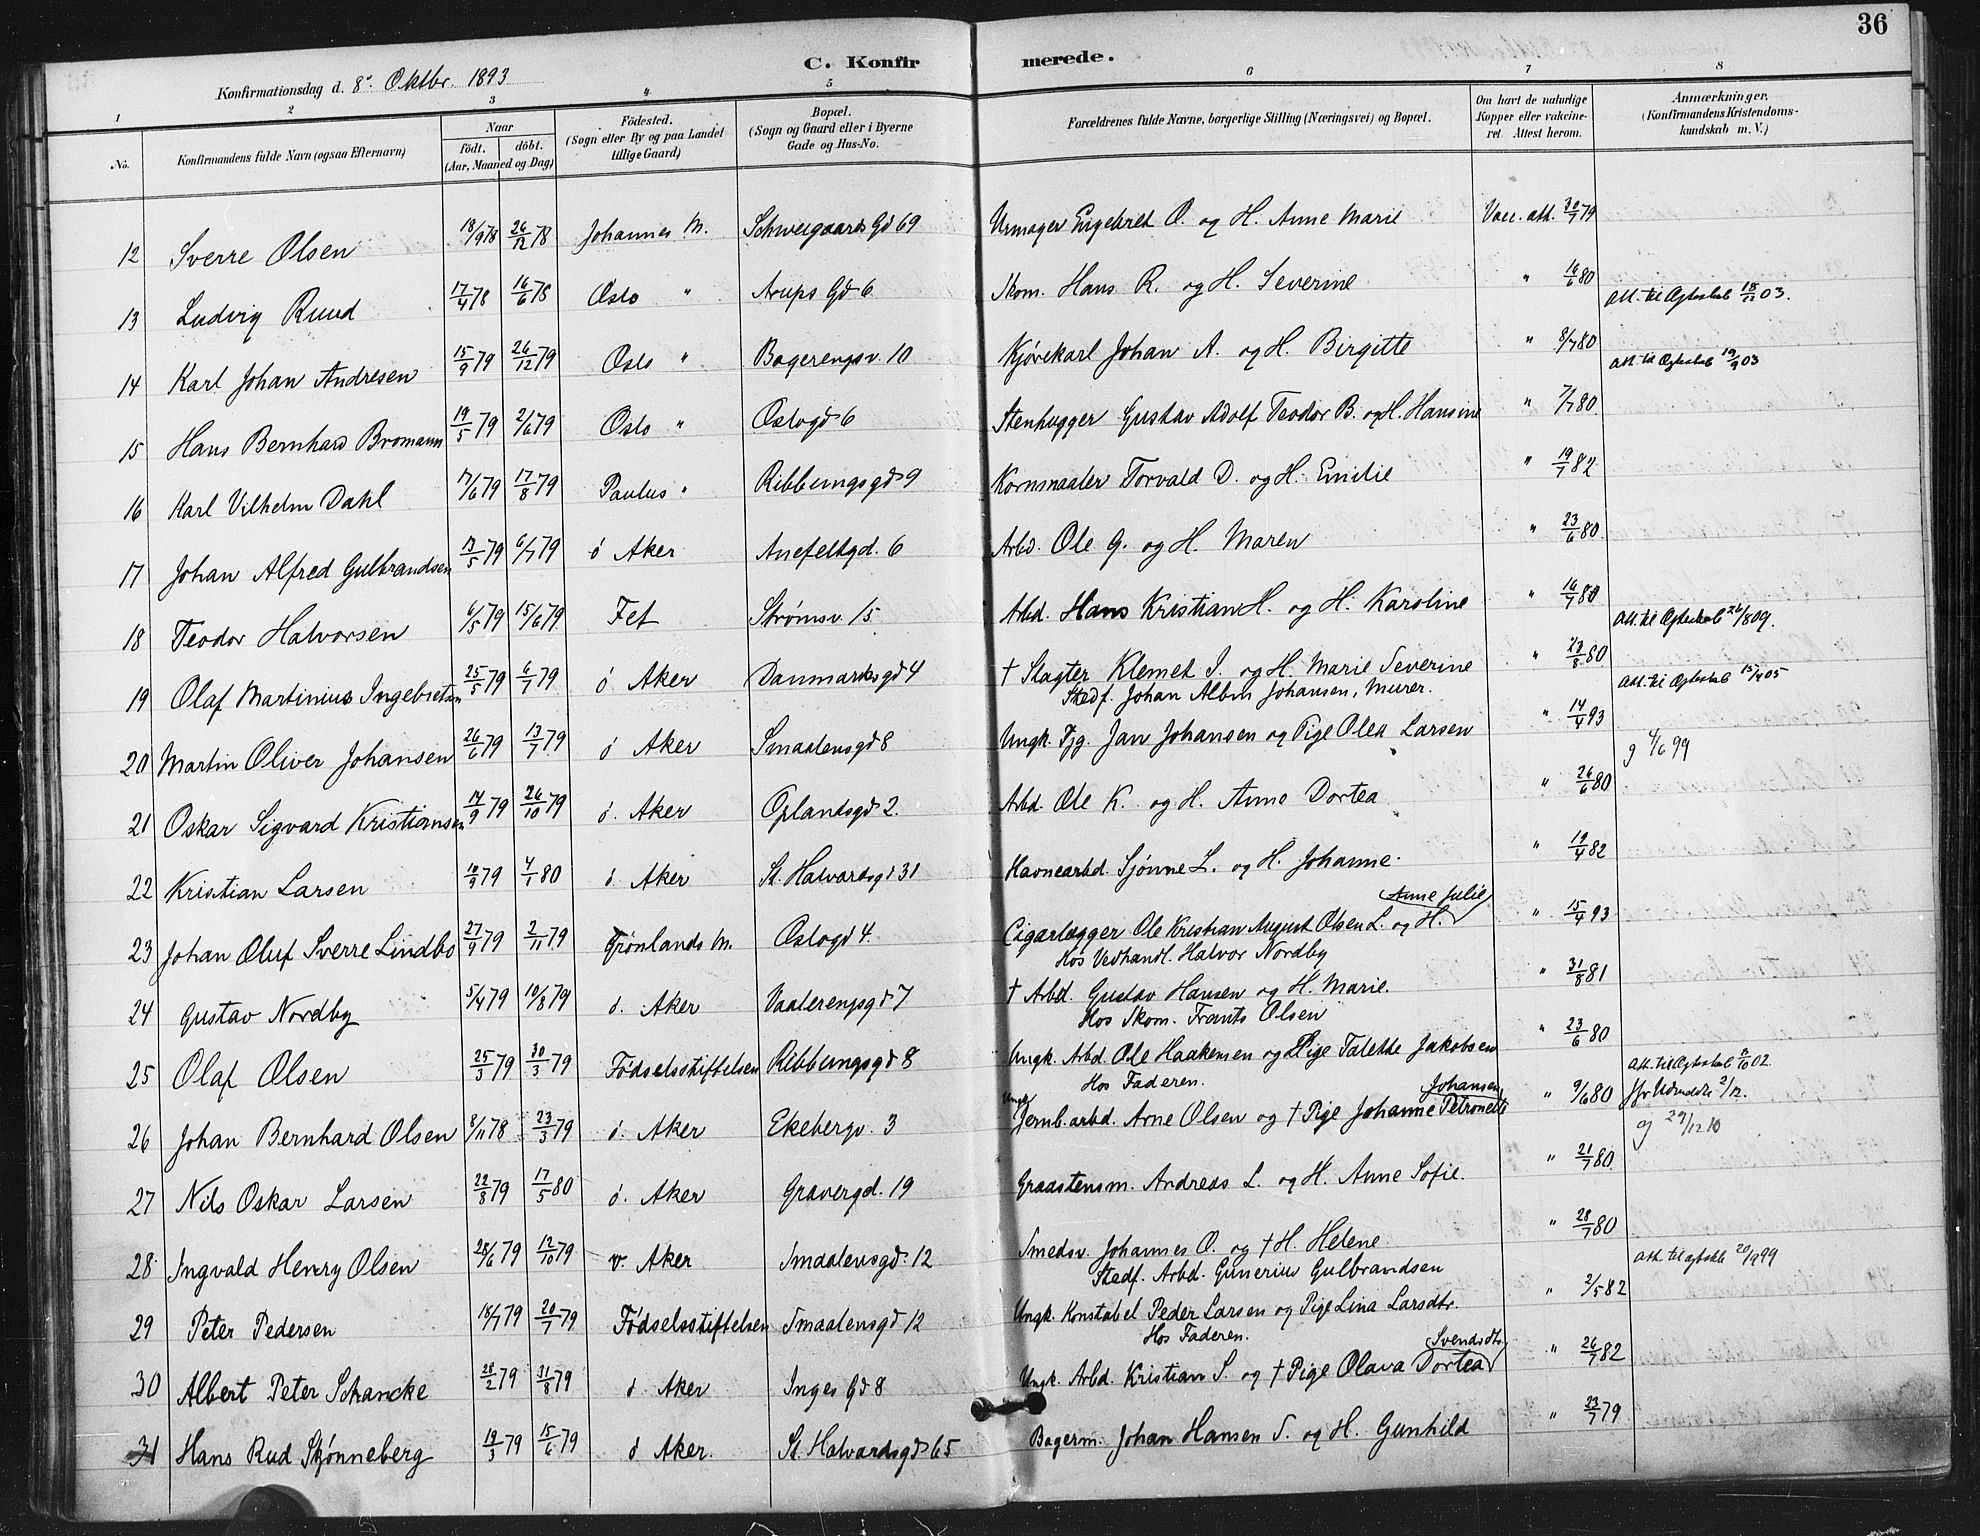 36
C. Konfirmerede.
Konfirmationsdag d. 8de Oktbr. 1893
1 2 3 4 5 6 7 8
No. Konfirmandens fulde Navn (ogsaa Efternavn) Naar födt. döbt. (Aar, Maaned og Dag) Födested. (Sogn eller By og paa Landet tillige Gaard) Bopæl. (Sogn og Gaard eller i Byerne Gade og Hus-No. Forældrenes fulde Navne, borgerlige Stilling (Næringsvei) og Bopæl. Om havt de naturlige Kopper eller vakcineret Attest herom. Anmærkninger. (Konfirmandens Kristendomskundskab m. V.)
12 Sverre Olsen 18/9 78 26/12 78 Johannes M. Schweigaards Gd 69 Urmager Engebret O. og H. Anne Marie Vacc. att. 30/7 79
13 Ludvig Ruud 17/4 78 16/6 78 Oslo " Arups Gd 6 Skom. Hans R. og H. Severine " 16/6 80 Att. til Ægteskab 18/12 03.
14 Karl Johan Andresen 15/9 79 26/12 79 Oslo " Bogerengsv. 10 Kjørekarl Johan A. og H. Birgitte " 8/7 80 Att. til Ægteskab 19/9 03
15 Hans Bernhard Bromann 19/5 79 2/6 79 Oslo " Oslogd 6 Stenhugger Gustav Adolf Teodor B. og H. Hansine " 7/7 80
16 Karl Vilhelm Dahl 17/6 79 17/8 79 Paulus " Ribbungsgd 9 Kornmaaler Torvald D. og H. Emilie " 19/7 82
17 Johan Alfred Gulbrandsen 13/5 79 6/7 79 ö Aker Anefeltgd. 6 Arbd. Ole G. og H. Maren " 23/6 80
18 Teodor Halvorsen 6/5 79 15/6 79 Fet Strømsv. 15 Arbd. Hans Kristian H. og H. Karoline " 16/7 80 Att. til Ægteskab 26/8 09.
19 Olaf Martinius Ingebretsen 25/5 79 6/7 79 ö Aker Danmarksgd 4 † Slagter Klemet I. og H. Marie Severine " 23/8 80 Att. til Ægteskab 15/4 05
Stedf. Johan Albin Johansen, Murer.
20 Martin Oliver Johansen 26/6 79 13/7 79 ö Aker Smaalensgd 8 Ungk. Tjg. Jan Johansen og Pige Olea Larsen " 14/4 93 g 4/6 99
21 Oskar Sigvard Kristiansen 14/9 79 26/10 79 ö. Aker Oplandsgd 2. Arbd Ole K. og H. Anne Dortea " 26/6 80
22 Kristian Larsen 10/9 79 4/1 80 ö. Aker St. Halvardsgd 31 Havnearbd. Sjønne L. og H. Johanne. " 19/4 82
23 Johan Oluf Sverre Lindbo 27/9 79 2/11 79 Grønlands M. Oslogd 4. Cigarlægger Ole Kristian August Olsen L. og H. Anne Julie " 15/4 93
Hos Vedhandl. Halvor Nordby
24 Gustav Nordby 5/4 79 10/8 79 ö. Aker Vaalerengsgd 7 † Arbd. Gustav Hansen og H. Marie. " 31/8 81
Hos Skom. Frants Olsen
25 Olaf Olsen 25/3 79 30/3 79 Födselsstiftelsen Ribbungsgd 8 Ungk. Arbd. Ole Haakensen og Pige Talette Jakobsen " 23/6 80 Att. til Ægteskab 8/10 02.
Hos Faderen.
26 Johan Bernhard Olsen 8/11 78 23/3 79 ö. Aker Ekebergv. 3 Ungk. Jernb.arbd. Arne Olsen og † Pige Johanne Petronelle Johansen " 9/6 80 g 29/12 10
27 Nils Oskar Larsen 22/8 79 17/5 80 ö. Aker Gravergd. 19 Graastensm. Andreas L. og H. Anne Sofie. " 21/7 80
28 Ingvald Henry Olsen 28/6 79 12/10 79 v. Aker Smaalensgd. 12 Smedsv. Johannes O. og † H. Helene " 28/7 80 Att. til Ægteskb 20/9 99
Stedf. Arbd. Gunerius Gulbrandsen
29 Peter Pedersen 18/7 79 20/7 79 Födselsstiftelsen Smaalensgd 12 Ungk. Konstabel Peder Larsen og Pige Lina Larsdtr. " 2/5 82
Hos Faderen.
30 Albert Peter Schancke 28/2 79 31/8 79 ö Aker Inges Gd 8 Ungk. Arbd. Kristian S. og † Pige Olava Dortea Svendsdtr " 26/7 82
31 Hans Rud Skjønneberg 19/3 79 15/6 79 ö Aker. St. Halvardsgd 65 Bagerm. Johan Hansen S. og H. Gunhild " 23/7 79